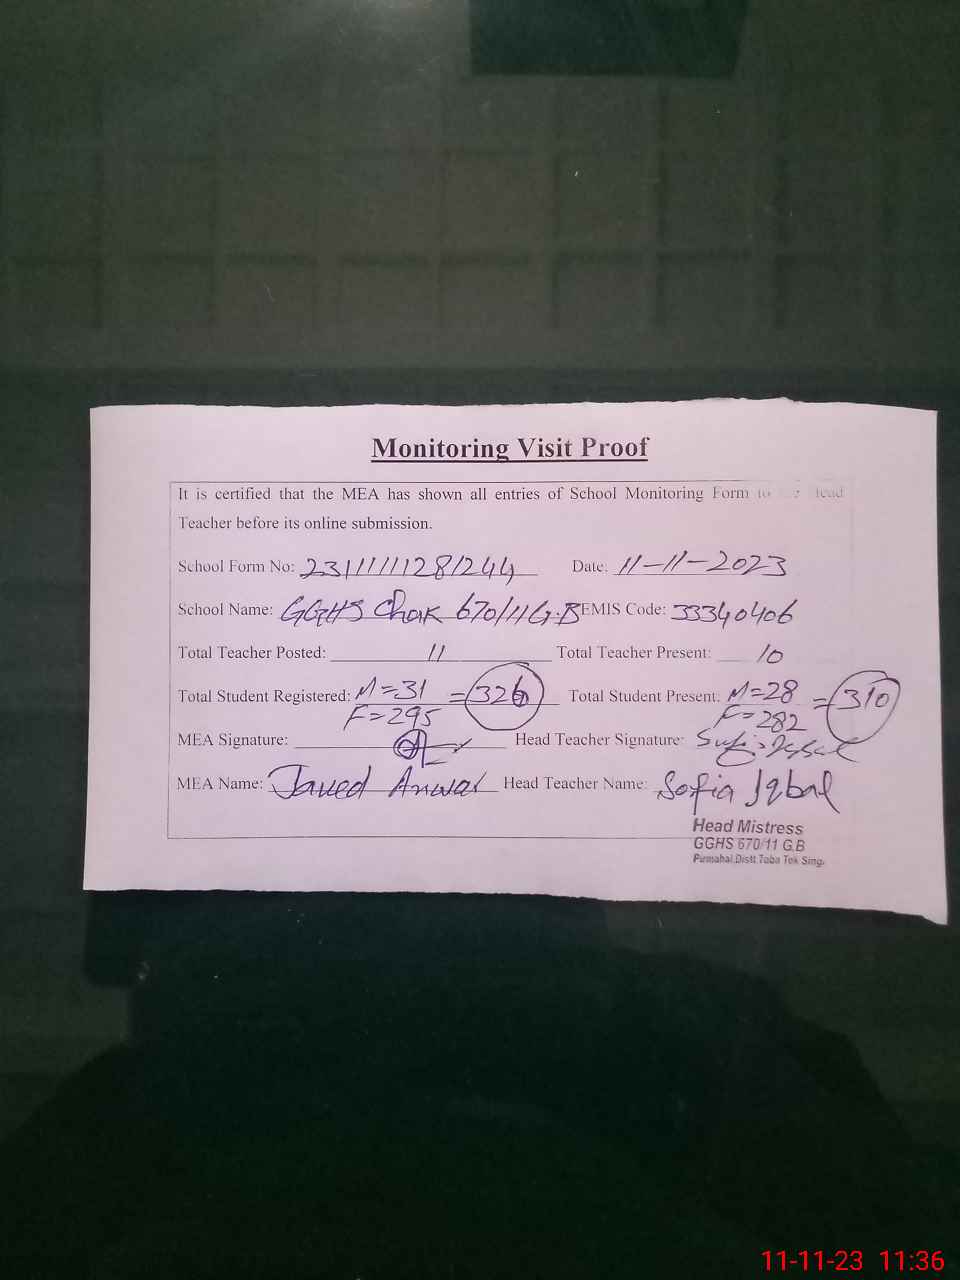 Monitoring Visit Proof
It is certified that the MEA has shown all entries of School Monitoring Form to Head
Teacher before its online submission.
School Form No: Date: 11-11-2023
School Name: GGHS Chak 670/11 G.B EMIS Code: 33340406
Total Teacher Posted: 11 Total Teacher Present: 10
Total Student Registered: M=31 =326 Total Student Present: M=28 =310
F=295 F=282
MEA Signature: Head Teacher Signature: Sofia Iqbal
MEA Name: Javed Anwar Head Teacher Name: Sofia Iqbal
Head Mistress
GGHS 670/11 G.B
Pirmahal Distt Toba Tek Sing.
11-11-23 11:36